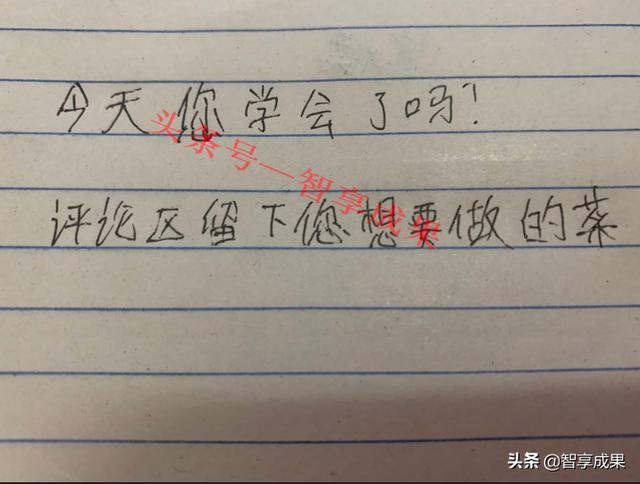 今天您学会了吗?
头条号—智享成果
评论区留下您想要做的菜
头条 @智享成果